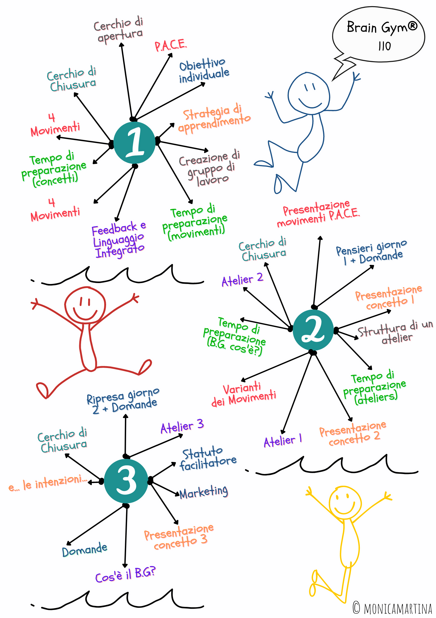 Brain Gym®
110
Cerchio di
apertura
P.A.C.E.
Obiettivo
individuale
Strategia di
apprendimento
Creazione di
gruppo di
lavoro
Tempo di
preparazione
(movimenti)
Feedback e
Linguaggio
Integrato
4
Movimenti
Tempo di
preparazione
(concetti)
4
Movimenti
Cerchio di
Chiusura
1
Presentazione
movimenti P.A.C.E.
Pensieri giorno
1 + Domande
Presentazione
concetto 1
Struttura di un
atelier
Tempo di
preparazione
(ateliers)
Presentazione
concetto 2
Atelier 1
Varianti
dei Movimenti
Tempo di
preparazione
(B.G. cos'è?)
Atelier 2
Cerchio di
Chiusura
2
Ripresa giorno
2 + Domande
Atelier 3
Statuto
facilitatore
Marketing
Presentazione
concetto 3
Cos'è il B.G?
Domande
e... le intenzioni...
Cerchio di
Chiusura
3
© MONICAMARTINA